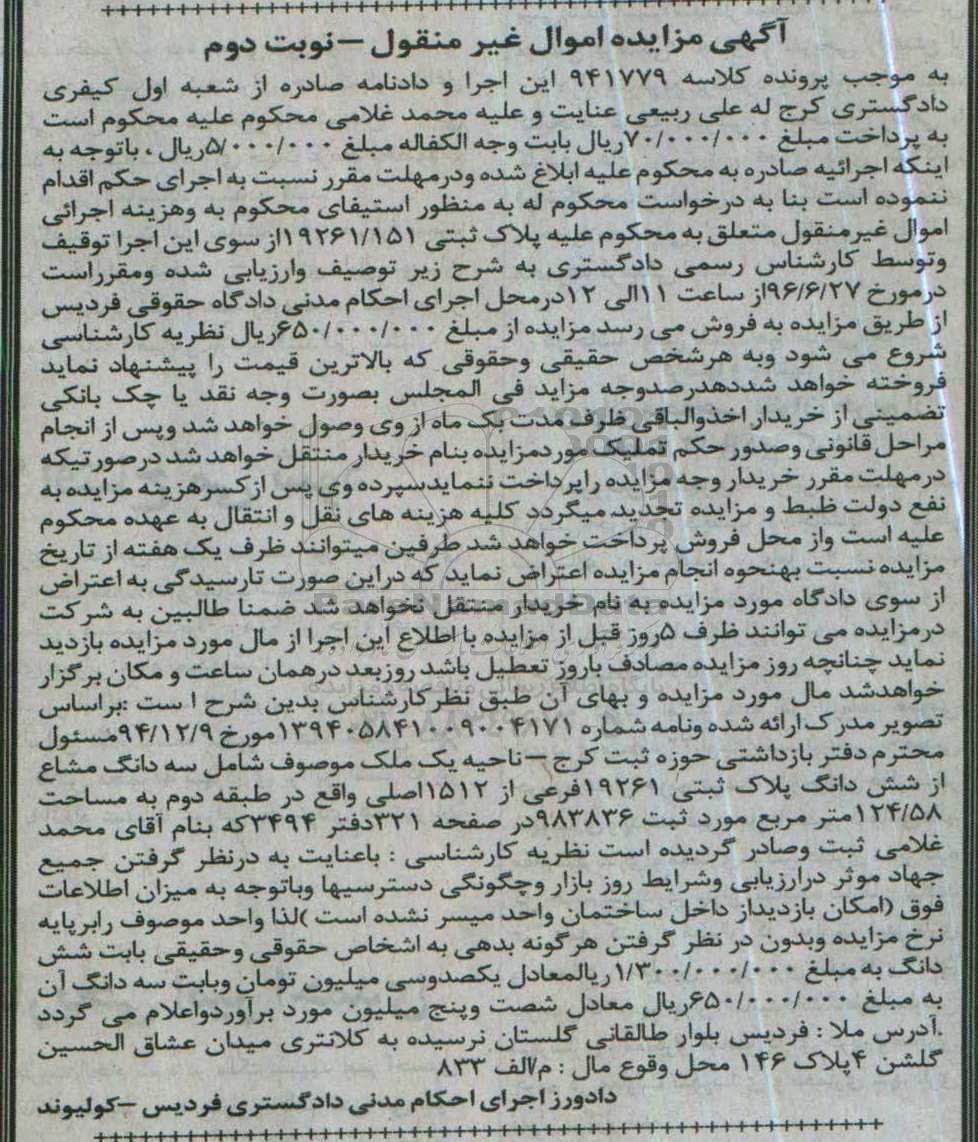 آگهی مزایده اموال غیر منقول – نوبت دوم
به موجب پرونده کلاسه ۹۴۱۷۷۹ این اجرا و دادنامه صادره از شعبه اول کیفری
دادگستری کرج له علی ربیعی عنایت و علیه محمد غلامی محکوم علیه محکوم است
به پرداخت مبلغ ۷۰/۰۰۰/۰۰۰ریال بابت وجه الکفاله مبلغ ۵/۰۰۰/۰۰۰ریال ، باتوجه به
اینکه اجرائیه صادره به محکوم علیه ابلاغ شده ودرمهلت مقرر نسبت به اجرای حکم اقدام
ننموده است بنا به درخواست محکوم له به منظور استیفای محکوم به وهزینه اجرائی
اموال غیرمنقول متعلق به محکوم علیه پلاک ثبتی ۱۹۲۶۱/۱۵۱از سوی این اجرا توقیف
وتوسط کارشناس رسمی دادگستری به شرح زیر توصیف وارزیابی شده ومقرراست
درمورخ ۹۶/۶/۲۷از ساعت ۱۱الی ۱۲درمحل اجرای احکام مدنی دادگاه حقوقی فردیس
از طریق مزایده به فروش می رسد مزایده از مبلغ ۶۵۰/۰۰۰/۰۰۰ریال نظریه کارشناسی
شروع می شود وبه هرشخص حقیقی وحقوقی که بالاترین قیمت را پیشنهاد نماید
فروخته خواهد شددهدرصدوجه مزاید فی المجلس بصورت وجه نقد یا چک بانکی
تضمینی از خریدار اخذوالباقی ظرف مدت یک ماه از وی وصول خواهد شد وپس از انجام
مراحل قانونی وصدور حکم تملیک موردمزایده بنام خریدار منتقل خواهد شد درصورتیکه
درمهلت مقرر خریدار وجه مزایده راپرداخت ننمایدسپرده وی پس ازکسرهزینه مزایده به
نفع دولت ظبط و مزایده تجدید میگردد کلیه هزینه های نقل و انتقال به عهده محکوم
علیه است واز محل فروش پرداخت خواهد شد طرفین میتوانند ظرف یک هفته از تاریخ
مزایده نسبت بهنحوه انجام مزایده اعتراض نماید که دراین صورت تارسیدگی به اعتراض
از سوی دادگاه مورد مزایده به نام خریدار منتقل نخواهد شد ضمنا طالبین به شرکت
درمزایده می توانند ظرف ۵روز قبل از مزایده با اطلاع این اجرا از مال مورد مزایده بازدید
نماید چنانچه روز مزایده مصادف باروز تعطیل باشد روزبعد درهمان ساعت و مکان برگزار
خواهدشد مال مورد مزایده و بهای آن طبق نظرکارشناس بدین شرح ا ست :براساس
تصویر مدرک ارائه شده ونامه شماره ۱۳۹۴۰۵۸۴۱۰۰۹۰۰۴۱۷۱مورخ ۹۴/۱۲/۹مسئول
محترم دفتر بازداشتی حوزه ثبت کرج –ناحیه یک ملک موصوف شامل سه دانگ مشاع
از شش دانگ پلاک ثبتی ۱۹۲۶۱فرعی از ۱۵۱۲اصلی واقع در طبقه دوم به مساحت
۱۲۴/۵۸متر مربع مورد ثبت ۹۸۳۸۳۶در صفحه ۳۲۱دفتر ۳۴۹۴که بنام آقای محمد
غلامی ثبت وصادر گردیده است نظریه کارشناسی : باعنایت به درنظر گرفتن جمیع
جهاد موثر درارزیابی وشرایط روز بازار وچگونگی دسترسیها وباتوجه به میزان اطلاعات
فوق (امکان بازدیداز داخل ساختمان واحد میسر نشده است )لذا واحد موصوف رابرپایه
نرخ مزایده وبدون در نظر گرفتن هرگونه بدهی به اشخاص حقوقی وحقیقی بابت شش
دانگ به مبلغ ۱/۳۰۰/۰۰۰/۰۰۰ریالمعادل یکصدوسی میلیون تومان وبابت سه دانگ آن
به مبلغ ۶۵۰/۰۰۰/۰۰۰ریال معادل شصت وپنج میلیون مورد برآوردواعلام می گردد
.آدرس ملا : فردیس بلوار طالقانی گلستان نرسیده به کلانتری میدان عشاق الحسین
گلشن ۴پلاک ۱۴۶ محل وقوع مال : م/الف ۸۳۳
دادورز اجرای احکام مدنی دادگستری فردیس –کولیوند